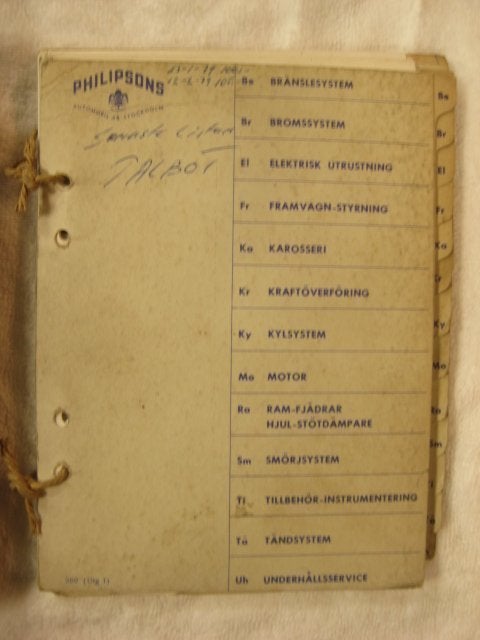 PHILIPSONS
AUTOMOBIL AB STOCKHOLM
Senaste Listan
TALBOT
Bs BRÄNSLESYSTEM
Br BROMSSYSTEM
El ELEKTRISK UTRUSTNING
Fr FRAMVAGN-STYRNING
Ka KAROSSERI
Kr KRAFTÖVERFÖRING
Ky KYLSYSTEM
Mo MOTOR
Ra RAM-FJÄDRAR
HJUL-STÖTDÄMPARE
Sm SMÖRJSYSTEM
Ti TILLBEHÖR-INSTRUMENTERING
Tä TÄNDSYSTEM
Uh UNDERHÅLLSSERVICE
Bs
Br
El
Fr
Ka
Kr
Ky
Mo
Ra
Sm
Ti